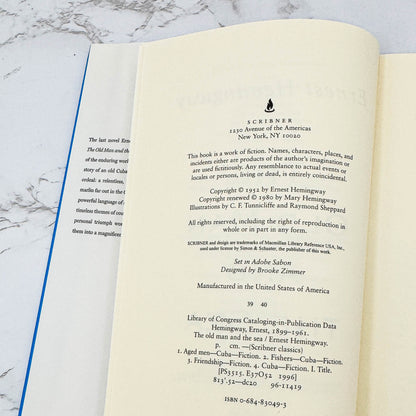 The last novel Ernest
The Old Man and the
of the enduring works
story of an old Cuban
ordeal: a relentless,
marlin far out in the
powerful language of
timeless themes of cou
personal triumph won
them into a magnificent
SCRIBNER
1230 Avenue of the Americas
New York, NY 10020
This book is a work of fiction. Names, characters, places, and
incidents either are products of the author's imagination or
are used fictitiously. Any resemblance to actual events or
locales or persons, living or dead, is entirely coincidental.
Copyright © 1952 by Ernest Hemingway
Copyright renewed © 1980 by Mary Hemingway
Illustrations by C. F. Tunnicliffe and Raymond Sheppard
All rights reserved, including the right of reproduction in
whole or in part in any form.
SCRIBNER and design are trademarks of Macmillan Library Reference USA, Inc.,
used under license by Simon & Schuster, the publisher of this work.
Set in Adobe Sabon
Designed by Brooke Zimmer
Manufactured in the United States of America
39 40
Library of Congress Cataloging-in-Publication Data
Hemingway, Ernest, 1899–1961.
The old man and the sea / Ernest Hemingway.
p. cm.—(Scribner classics)
1. Aged men—Cuba—Fiction. 2. Fishers—Cuba—Fiction.
3. Friendship—Fiction. 4. Cuba—Fiction. I. Title.
[PS3515.E37O52 1996]
813'.52—dc20 96-11419
ISBN 0-684-83049-3